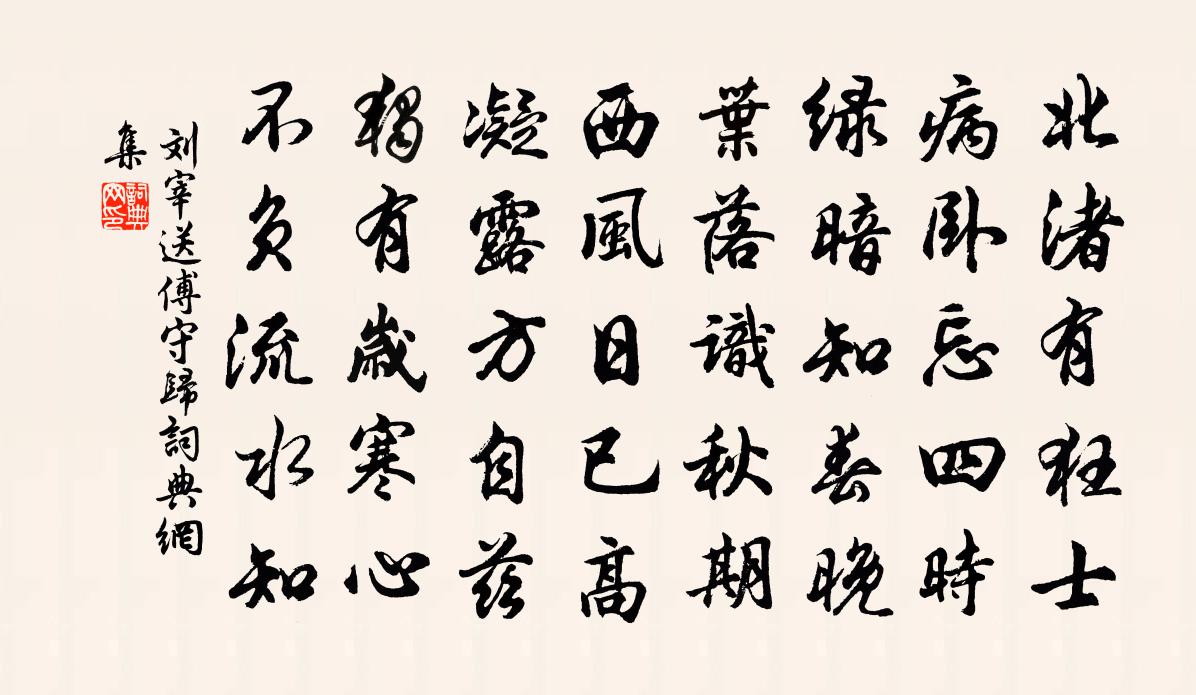 北渚有狂士
病卧忘四時
緑暗知春晚
葉落識秋期
西風日已高
凝露方自茲
獨有歲寒心
不負流水知
刘宰送傅守歸詞典網
集
詞典网印